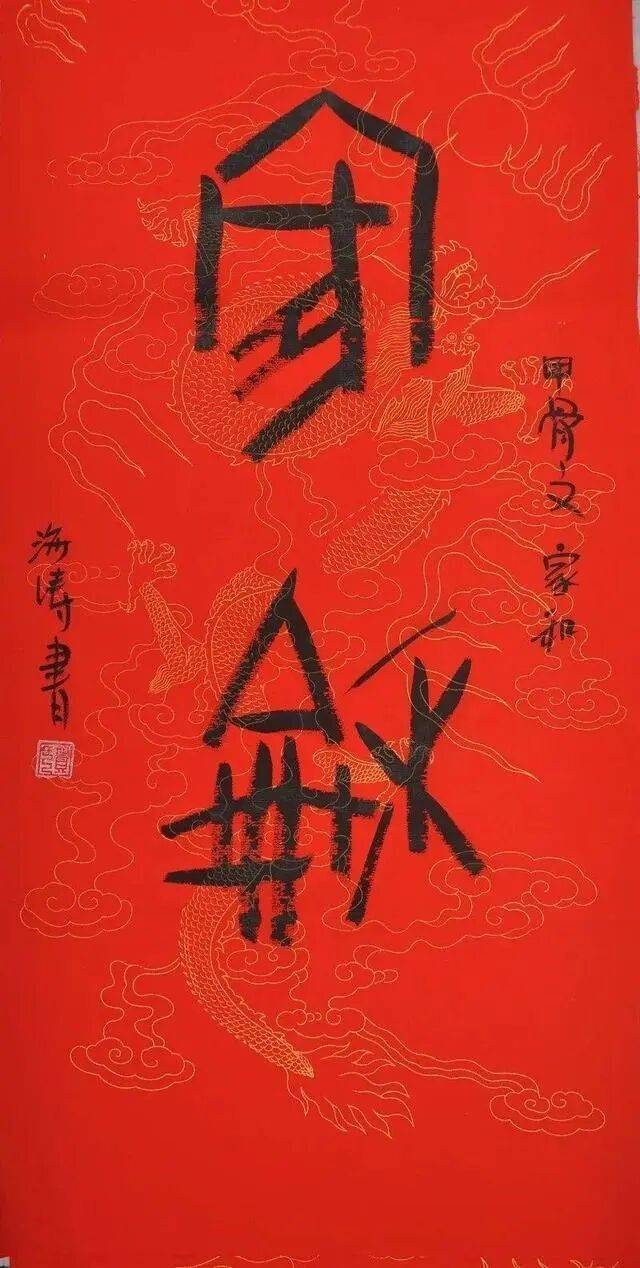 家龢
甲骨文 家和
海涛書